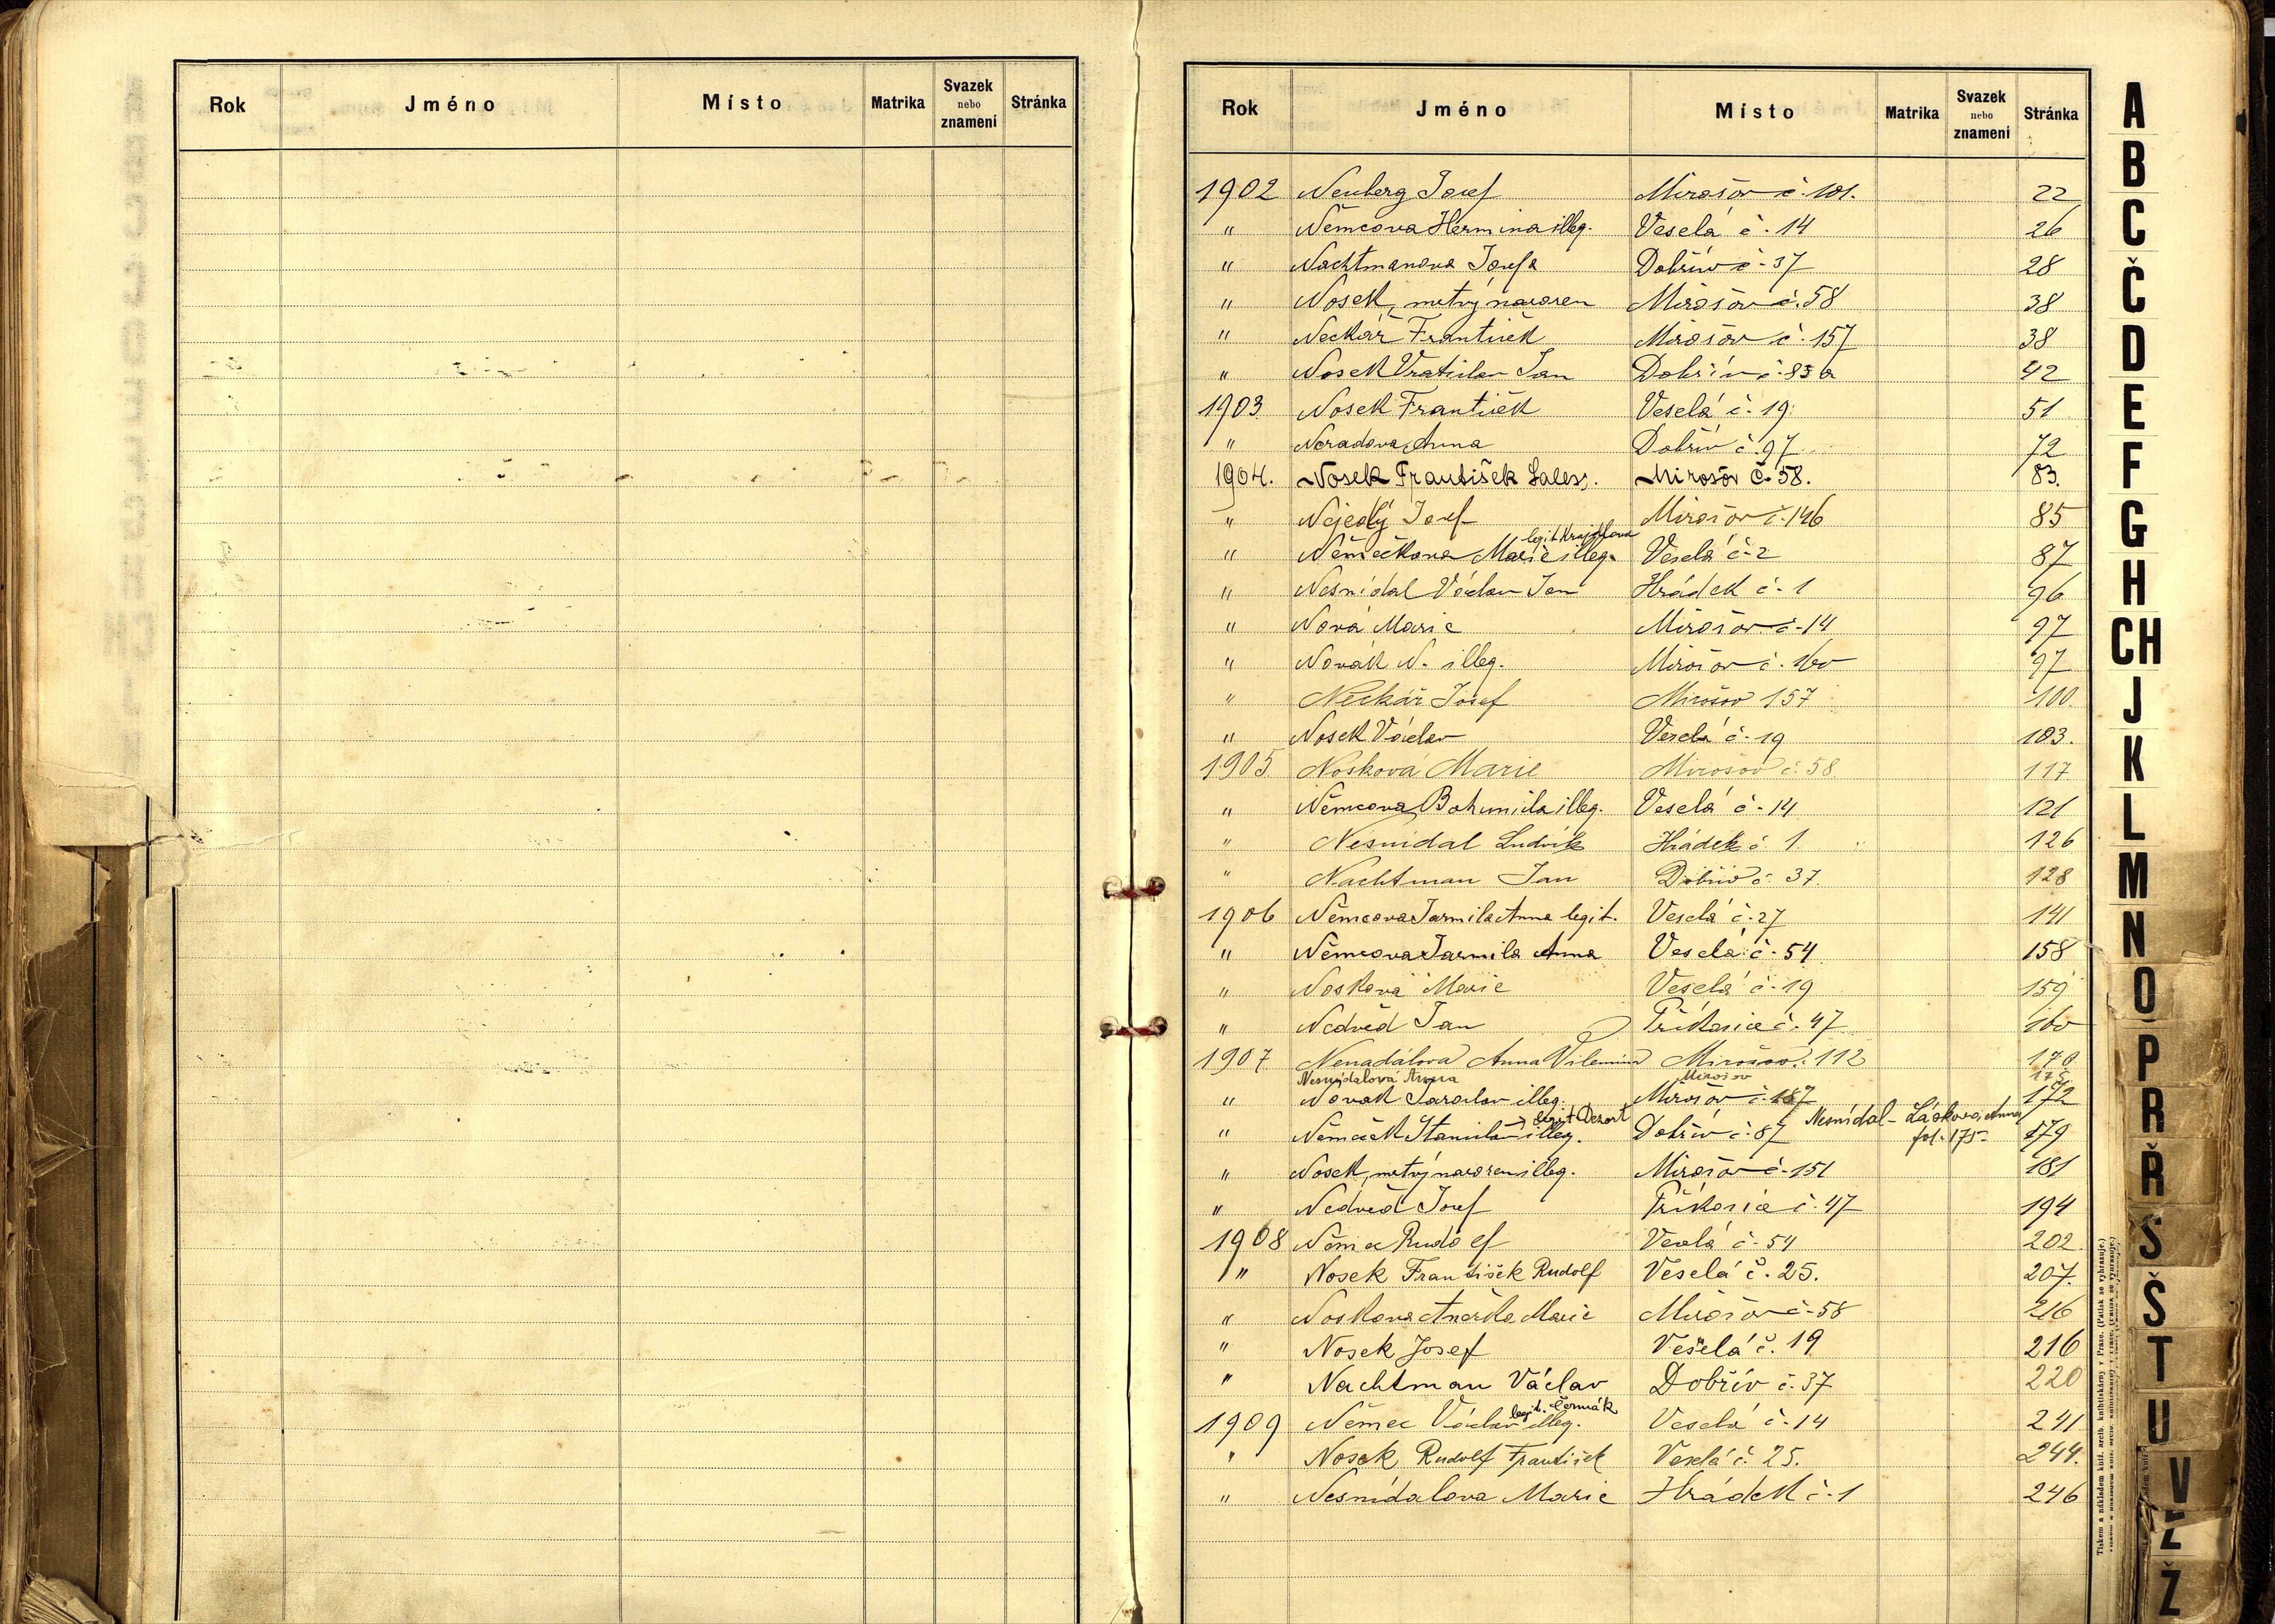 Rok Jméno Místo Matrika Svazek nebo znamení Stránka
Rok Jméno Místo Matrika Svazek nebo znamení Stránka
1902 Neuberg Josef Mirošov č. 101. 22
" Němcova Hermina illeg. Veselá č. 14 26
" Nachtmanova Josefa Dobřív č. 37 28
" Nosek, mrtvý narozen Mirošov č. 58 38
" Neckář František Mirošov č. 157 38
" Nosek Vratislav Jan Dobřív č. 83 a 42
1903 Nosek František Veselá č. 19. 51
" Neradova Anna Dobřív č. 97 72
1904. Nosek František Sales. Mirošov č. 58. 83.
" Nejedlý Josef Mirošov č. 146 85
" Němečkova Marie illeg. Veselá č. 2 87
" Nesnídal Václav Jan Hrádek č. 1 96
" Nová Marie Mirošov č. 14 97
" Novák N. illeg. Mirošov č. 160 97
" Neckář Josef Mirošov 157 100.
" Nosek Václav Veselá č. 19 103.
1905 Nosková Marie Mirošov č. 58. 117
" Němcova Bohumila illeg. Veselá č. 14 121
" Nesnídal Ludvík Hrádek č. 1. 126
" Nachtman Jan Dobřív č. 37. 128
1906 Němcova Jarmila Anna legit. Veselá č. 27 141
" Němcova Jarmila Anna Veselá č. 54 158
" Noskova Marie Veselá č. 19 159
" Nedvěd Jan Příkosice č. 47 160
1907 Nenadálova Anna Vilemína Mirošov č. 112 170
Nesnídalová Anna Mirošov 175
" Novák Jaroslav illeg. Mirošov č. 187 172
legit Dezort Nesnídal - Láskova, Anna
" Němeček Stanislav illeg. Dobřív č. 87 fol. 175 179
" Nosek, mrtvý narozen illeg. Mirošov č. 151 181
" Nedvěd Josef Příkosice č. 47 194
1908 Němec Rudolf Veselá č. 54 202
" Nosek František Rudolf Veselá č. 25. 207.
" Noskova Anežka Marie Mirošov č. 58 216
" Nosek Josef Veselá č. 19 216
" Nachtman Václav Dobřív č. 37 220
legit. Čermák
1909 Němec Václav illeg. Veselá č. 14 241
" Nosek Rudolf František Veselá č. 25. 244.
" Nesnídalova Marie Hrádek č. 1 246
A
B
C
Č
D
E
F
G
H
CH
J
K
L
M
N
O
P
R
Ř
S
Š
T
U
V
Z
Ž
Tiskem a nákladem kníž. arcib. knihtiskárny v Praze. (Patisk se vyhrazuje.)